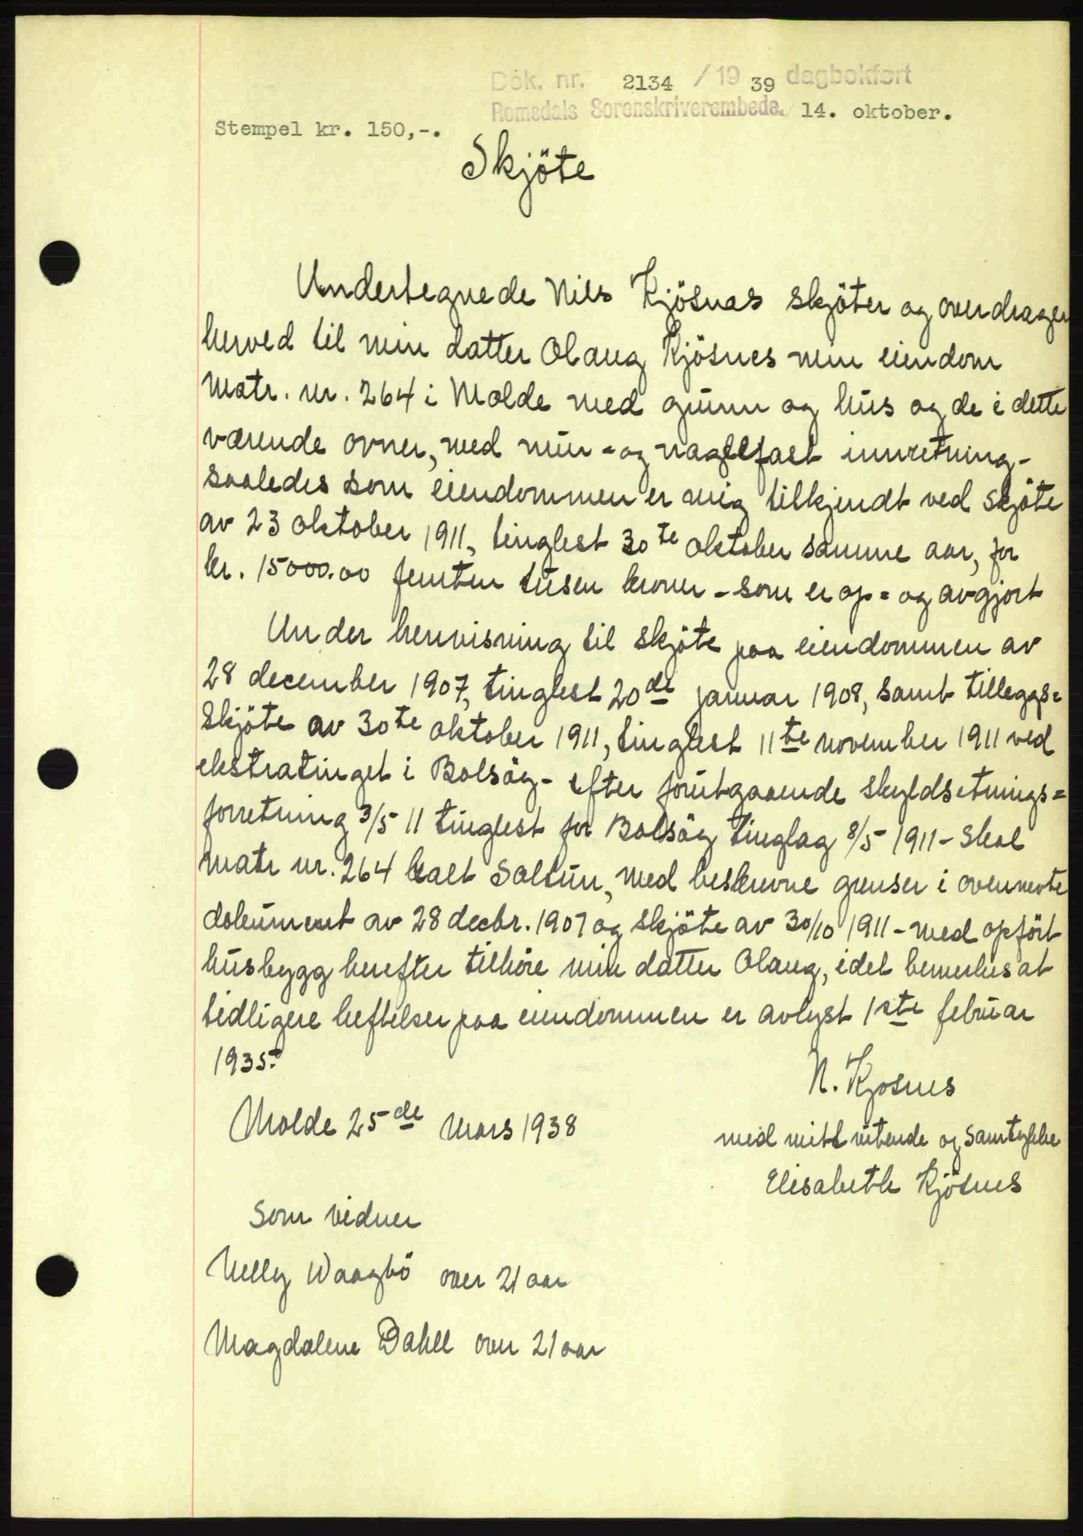 Dok. nr. 2134 / 19 39 dagbokført
Romsdals Sorenskriverembede. 14. oktober.
Stempel kr. 150,-.
Skjöte
Undertegnede Nils Kjösnes skjöter og overdrager
herved til min datter Olaug Kjösnes min eiendom
Matr. nr. 264 i Molde med grunn og hus og de i dette
værende ovner, med mur- og naglefast innretning -
saaledes som eiendommen er mig tilkjendt ved skjöte
av 23 oktober 1911, tinglest 30te oktober samme aar, for
kr. 15000.00 femten tusen kroner - som er op- og avgjort
Under henvisning til skjöte paa eiendommen av
28 december 1907, tinglest 20de januar 1908, samt tilleggs=
skjöte av 30te oktober 1911, tinglest 11te november 1911 ved
ekstratinget i Bolsöy - efter forutgaaende skyldsetnings=
forretning 3/5 11 tinglest for Bolsöy tinglag 8/5 1911 - skal
Matr nr. 264 kalt Soltun, med beskrevne grenser i ovennevnte
dokument av 28 decbr. 1907 og skjöte av 30/10 1911 - med opfört
husbygg herefter tilhöre min datter Olaug, idet bemerkes at
tidligere heftelser paa eiendommen er avlyst 1ste februar
1935.
N. Kjosnes
Molde 25de Mars 1938
med mitt vitende og samtykke
Elisabeth Kjösnes
Som vidner
Nelly Waagbö over 21 aar
Magdalene Dahll over 21 aar